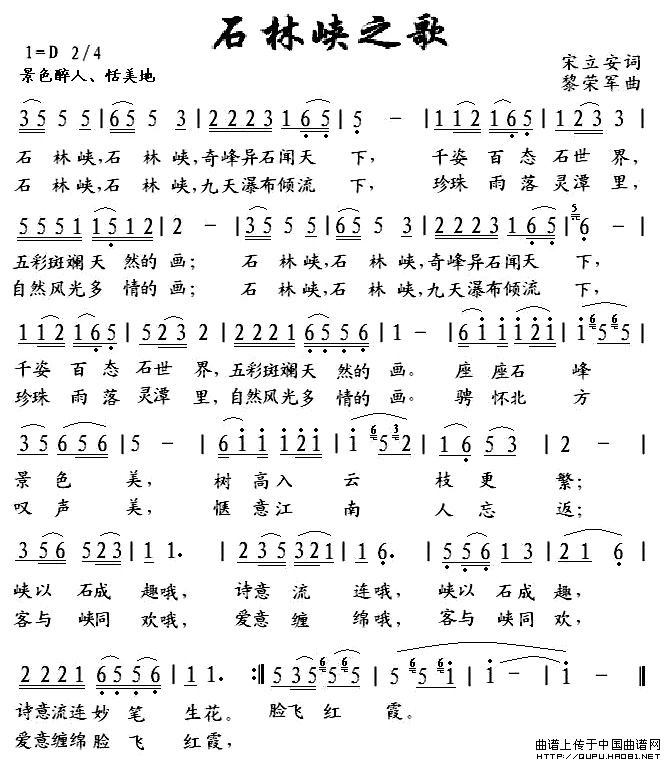 石林峡之歌
1=D 2/4
宋立安词
景色醉人、恬美地
黎荣军曲
3 5 5 5 | 6 5 5 3 | 2 2 2 3 1 6 5 | 5 - | 1 1 2 1 6 5 | 1 2 3 3 |
石 林 峡,石 林 峡,奇峰异石闻天 下, 千姿 百 态 石世 界,
石 林 峡,石 林 峡,九天瀑布倾流 下, 珍珠 雨 落 灵潭 里,
5 5 5 1 1 5 1 2 | 2 - | 3 5 5 5 | 6 5 5 3 | 2 2 2 3 1 6 5 | 5 6 - |
五彩斑斓天 然的 画; 石 林 峡,石 林 峡,奇峰异石闻天 下,
自然风光多 情的 画; 石 林 峡,石 林 峡,九天瀑布倾流 下,
1 1 2 1 6 5 | 5 2 3 2 | 2 2 2 1 6 5 5 6 | 1 - | 6 1 1 1 2 1 | 1 6 5 6 5 |
千姿 百 态 石世 界,五彩斑斓天 然的 画。 座 座石 峰
珍珠 雨 落 灵潭 里,自然风光多 情的 画。 骋 怀北 方
3 5 6 5 6 | 5 - | 6 1 1 1 2 1 | 1 6 5 3 2 | 1 6 5 3 | 2 - |
景 色 美, 树 高入 云 枝 更 繁;
叹 声 美, 惬 意江 南 人 忘 返;
3 5 6 5 2 3 | 1 1. | 2 3 5 3 2 1 | 1 6. | 5 5 6 1 3 | 2 1 6 |
峡以 石成 趣哦, 诗意 流 连哦, 峡以 石成 趣,
客与 峡同 欢哦, 爱意 缠 绵哦, 客与 峡同 欢,
2 2 2 1 6 5 5 6 | 1 1. :‖ 5 3 5 6 5 6 5 | 5 5 6 1 | 1 - | 1 - |
诗意流连 妙 笔 生花。 脸飞 红 霞。
爱意缠绵 脸 飞 红霞,
曲谱上传于中国曲谱网
HTTP://QUPU.HAO81.NET